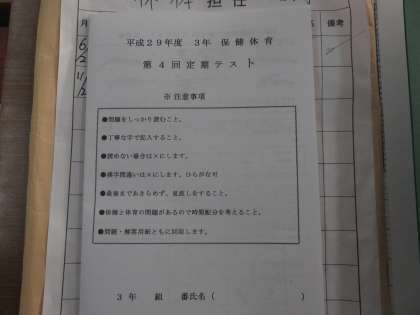 担任
月
備考
平成29年度 3年 保健体育
第4回定期テスト
※注意事項
●問題をしっかり読むこと。
●丁寧な字で記入すること。
●読めない場合は×にします。
●漢字間違いは×にします。ひらがな可
●最後まであきらめず、見直しをすること。
●保健と体育の問題があるので時間配分を考えること。
●問題・解答用紙ともに回収します。
3年 組 番氏名( )